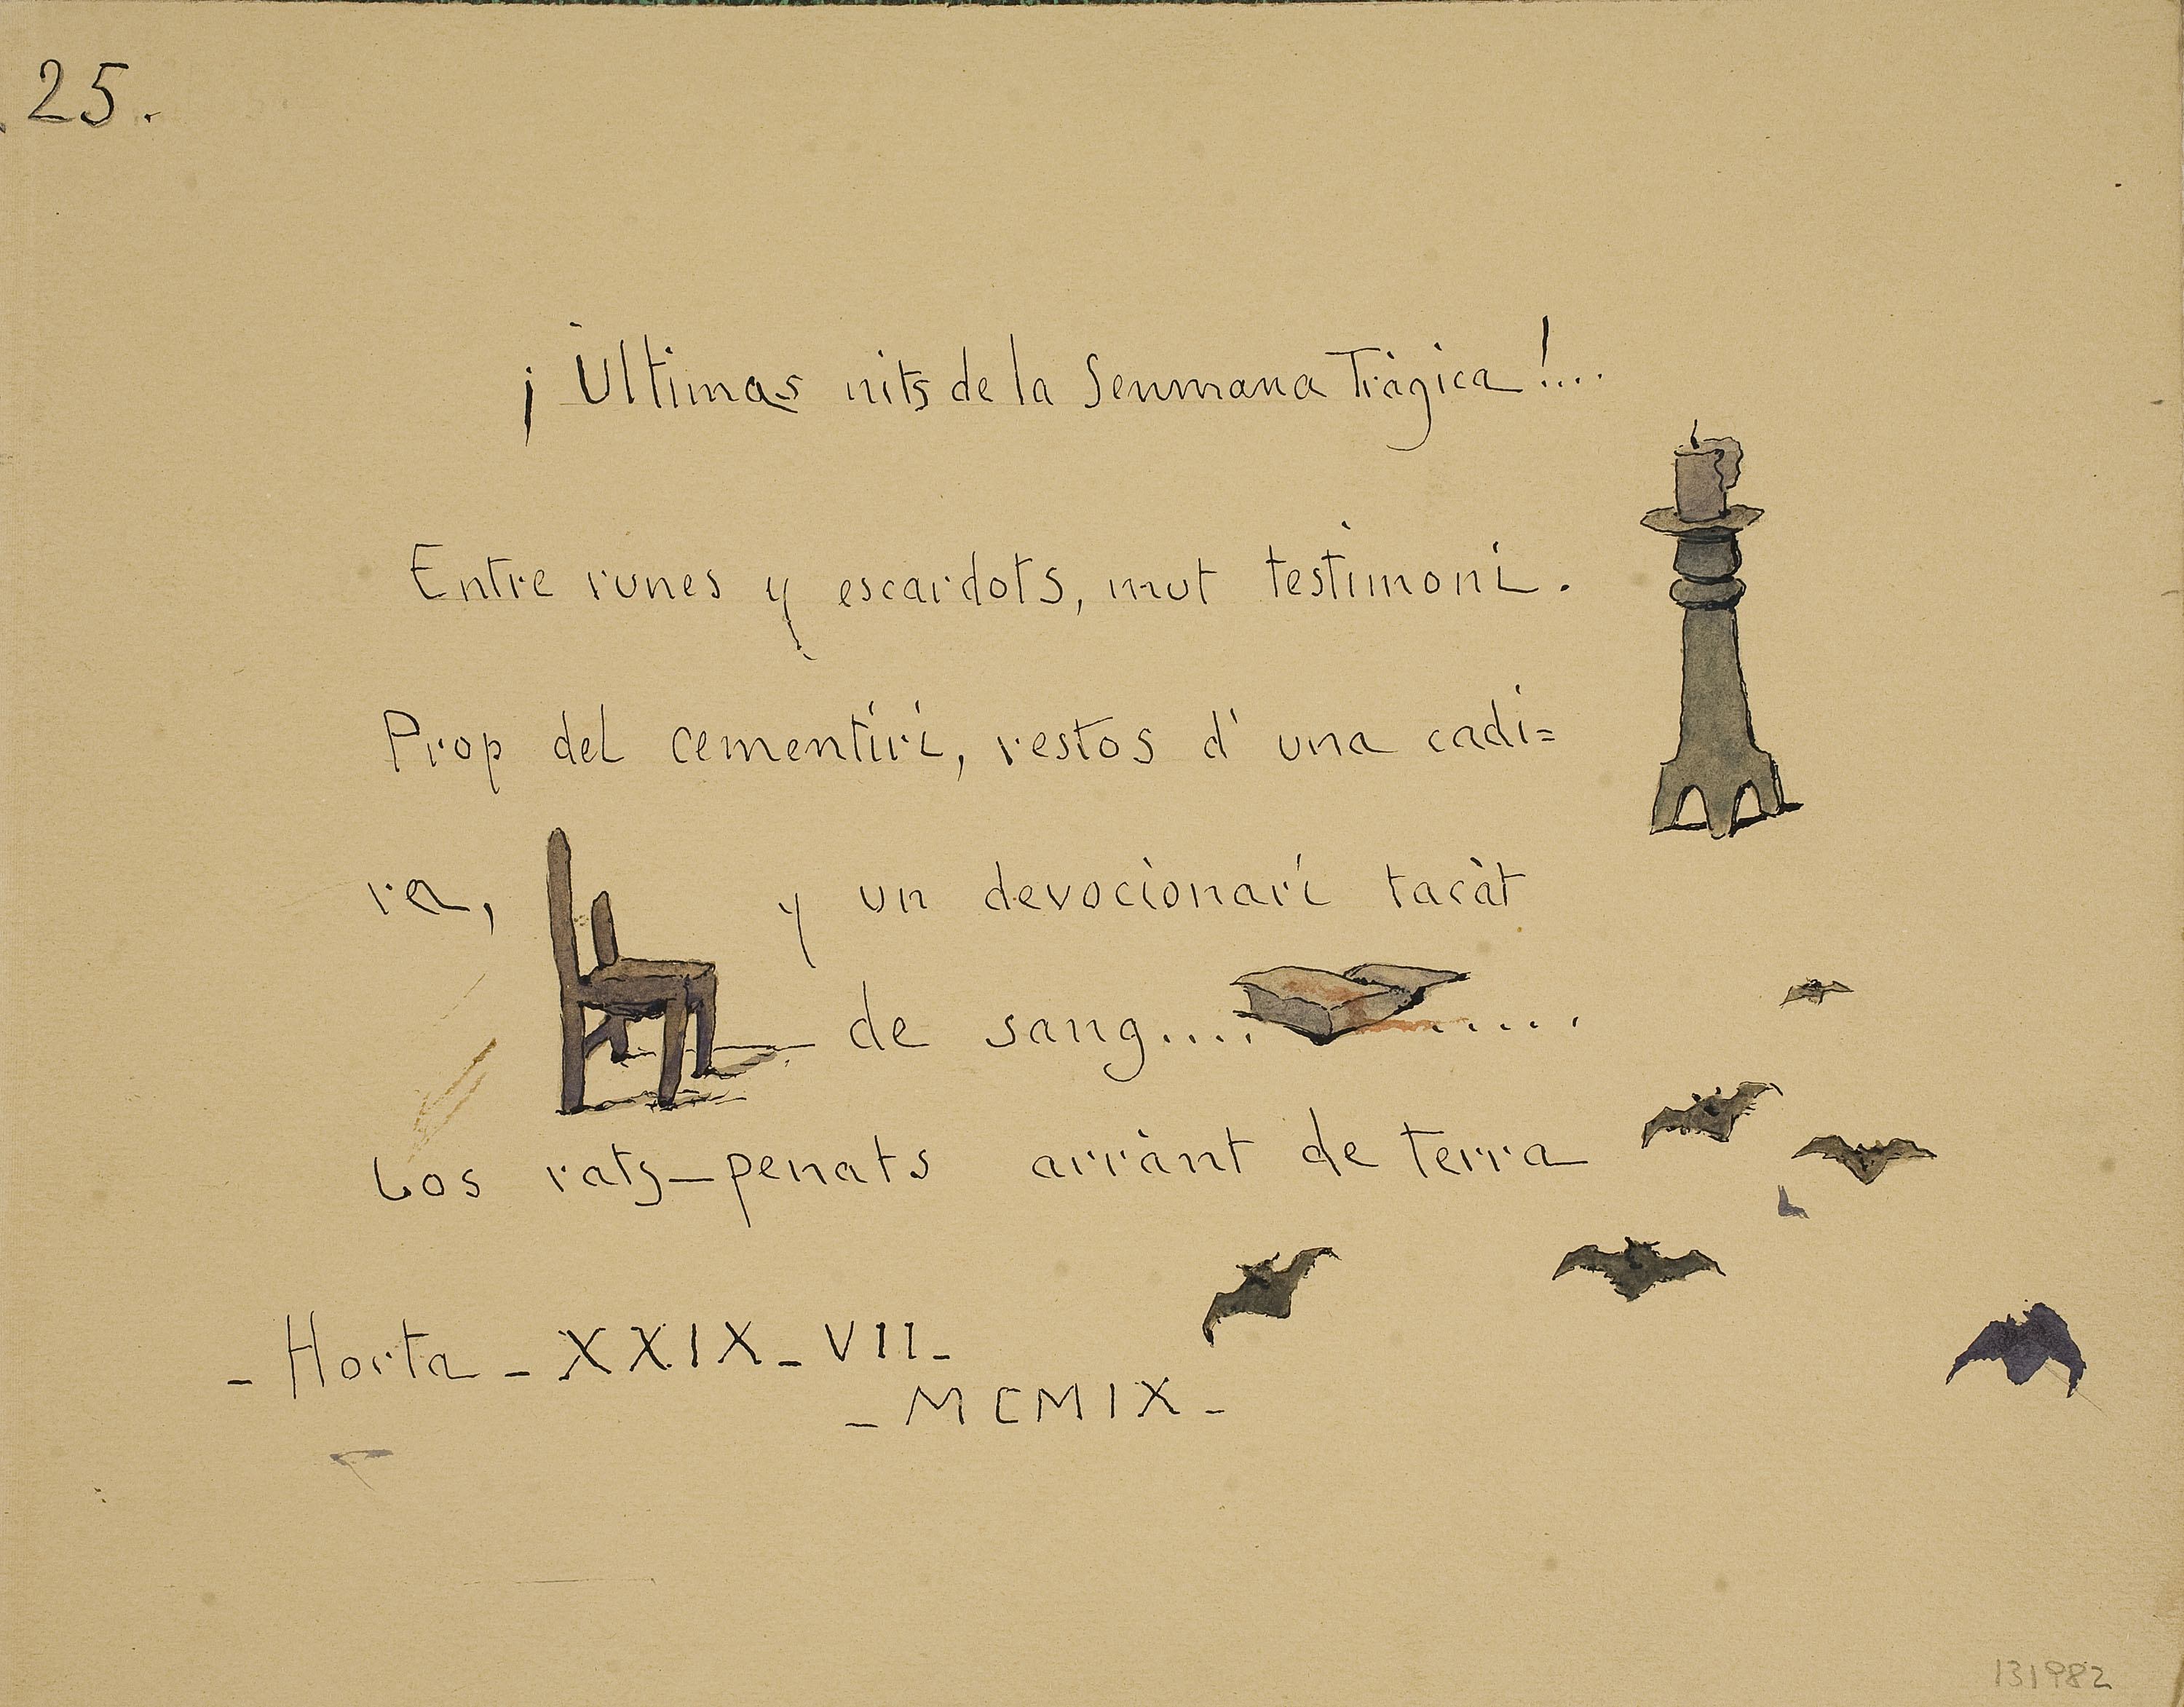 25.
¡Ultimas nits de la Senmana Tràgica!....
Entre runes y escardots, mut testimoni.
Prop del cementiri, restos d' una cadi=
ra, y un devocionari tacàt
de sang.... .....
Los rats-penats arrànt de terra
- Horta - XXIX - VII -
- MCMIX -
131982